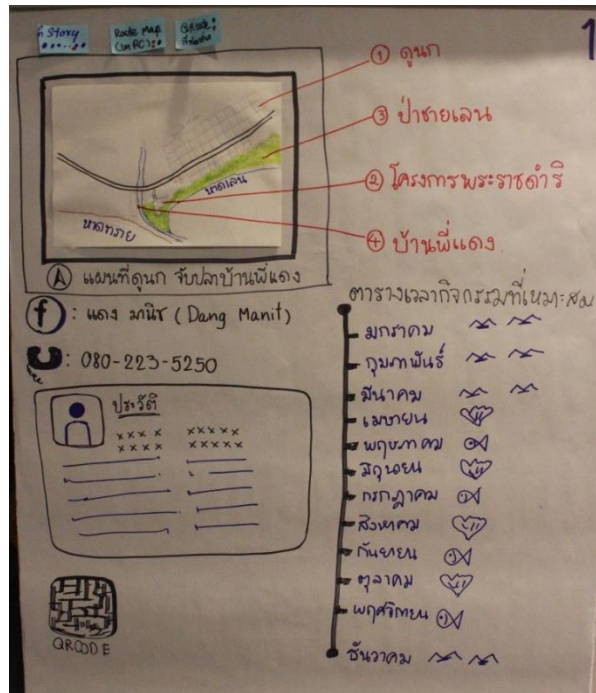 Story
Route Map
(บน PC)
QRcode
1
① ดูนก
③ ป่าชายเลน
② โครงการพระราชดำริ
④ บ้านพี่แดง
หาดเลน
หาดทราย
Ⓐ แผนที่ดูนก จับปลาบ้านพี่แดง
f : แดง มานิช (Dang Manit)
: 080-223-5250
ประวัติ
xxxx xxxxx
xxxx xxxxx
QRCODE
ตารางเวลากิจกรรมที่เหมาะสม
มกราคม
กุมภาพันธ์
มีนาคม
เมษายน
พฤษภาคม
มิถุนายน
กรกฎาคม
สิงหาคม
กันยายน
ตุลาคม
พฤศจิกายน
ธันวาคม